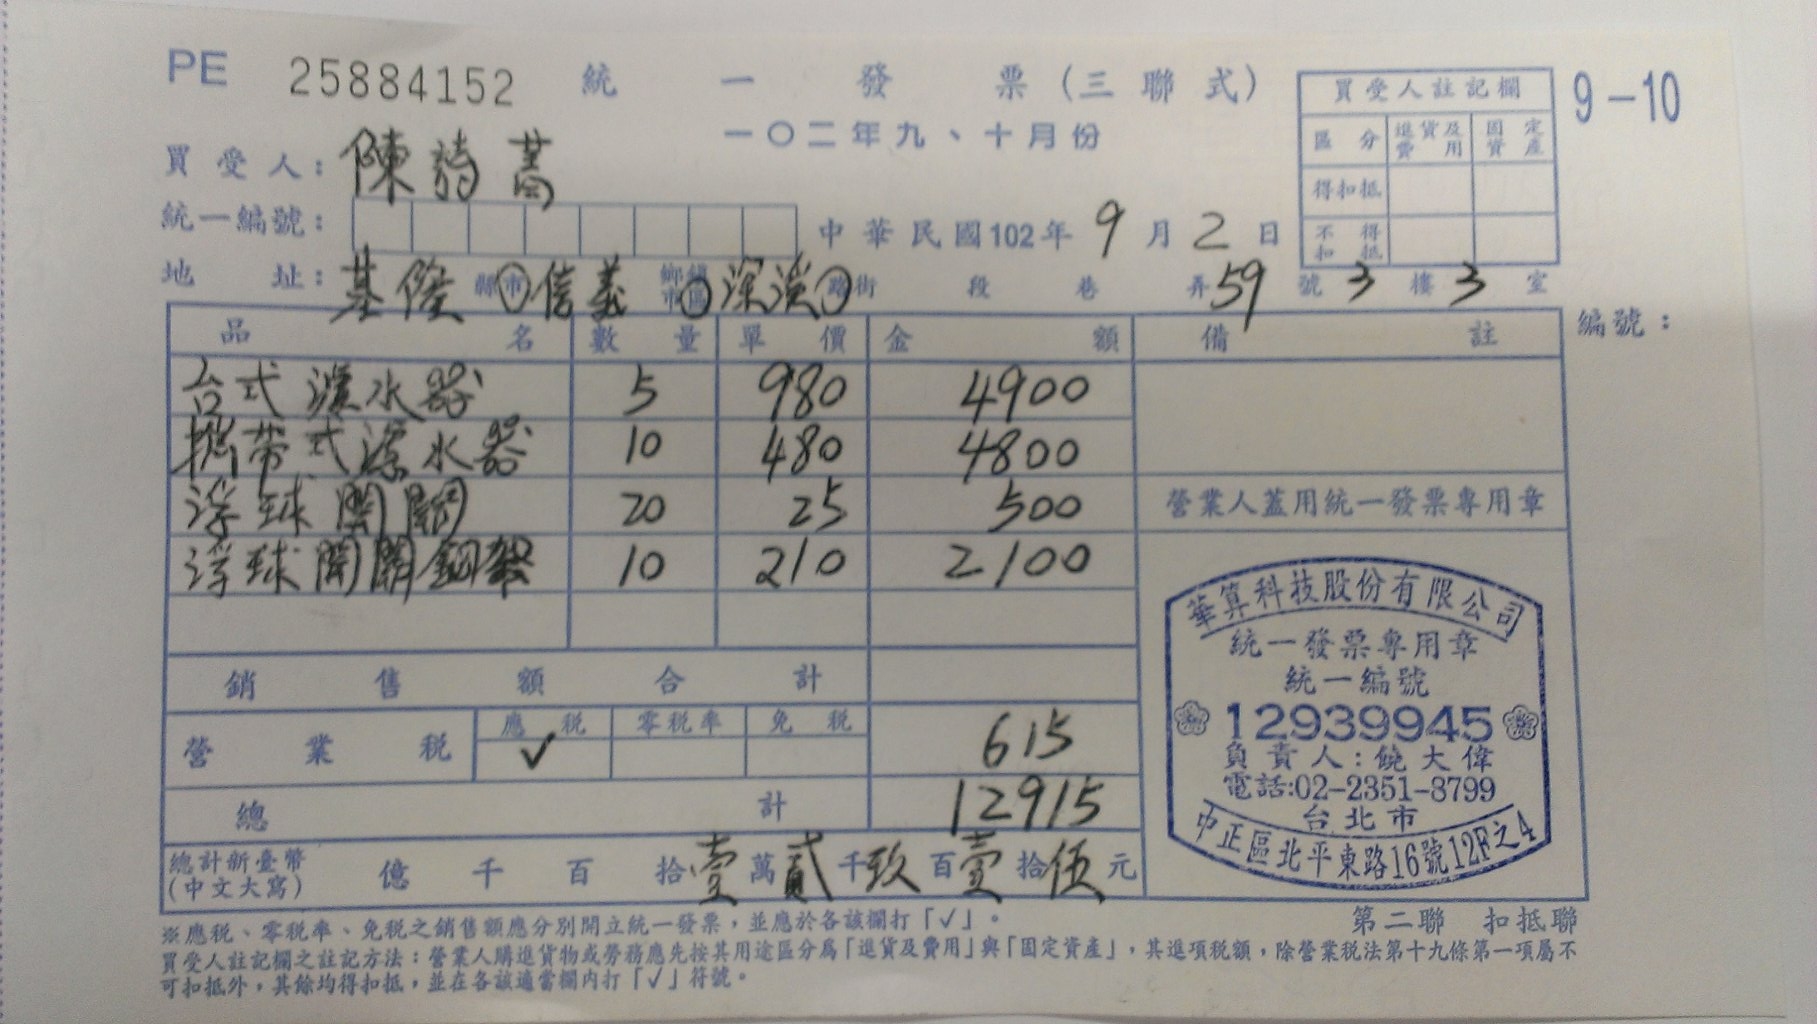 PE 25884152 統一發票(三聯式) 9-10
一〇二年九、十月份
買受人註記欄
區分 進貨及費用 固定資產
得扣抵
不得扣抵
買受人:陳詩萱
統一編號: 中華民國102年9月2日
地址:基隆縣市信義鄉鎮市區深溪路街段巷弄59號3樓3室
編號:
品名 數量 單價 金額 備註
台式濾水器 5 980 4900
攜帶式濾水器 10 480 4800
浮球開關 20 25 500
浮球開關鋼架 10 210 2100
營業人蓋用統一發票專用章
銷售額合計
營業稅 應稅 零稅率 免稅
✓ 615
總計 12915
總計新臺幣(中文大寫) 億千百拾壹萬貳千玖百壹拾伍元
華算科技股份有限公司
統一發票專用章
統一編號
12939945
負責人:饒大偉
電話:02-2351-8799
台北市
中正區北平東路16號12F之4
※應稅、零稅率、免稅之銷售額應分別開立統一發票,並應於各該欄打「✓」。
第二聯 扣抵聯
買受人註記欄之註記方法:營業人購進貨物或勞務應先按其用途區分為「進貨及費用」與「固定資產」,其進項稅額,除營業稅法第十九條第一項屬不
可扣抵外,其餘均得扣抵,並在各該適當欄內打「✓」符號。